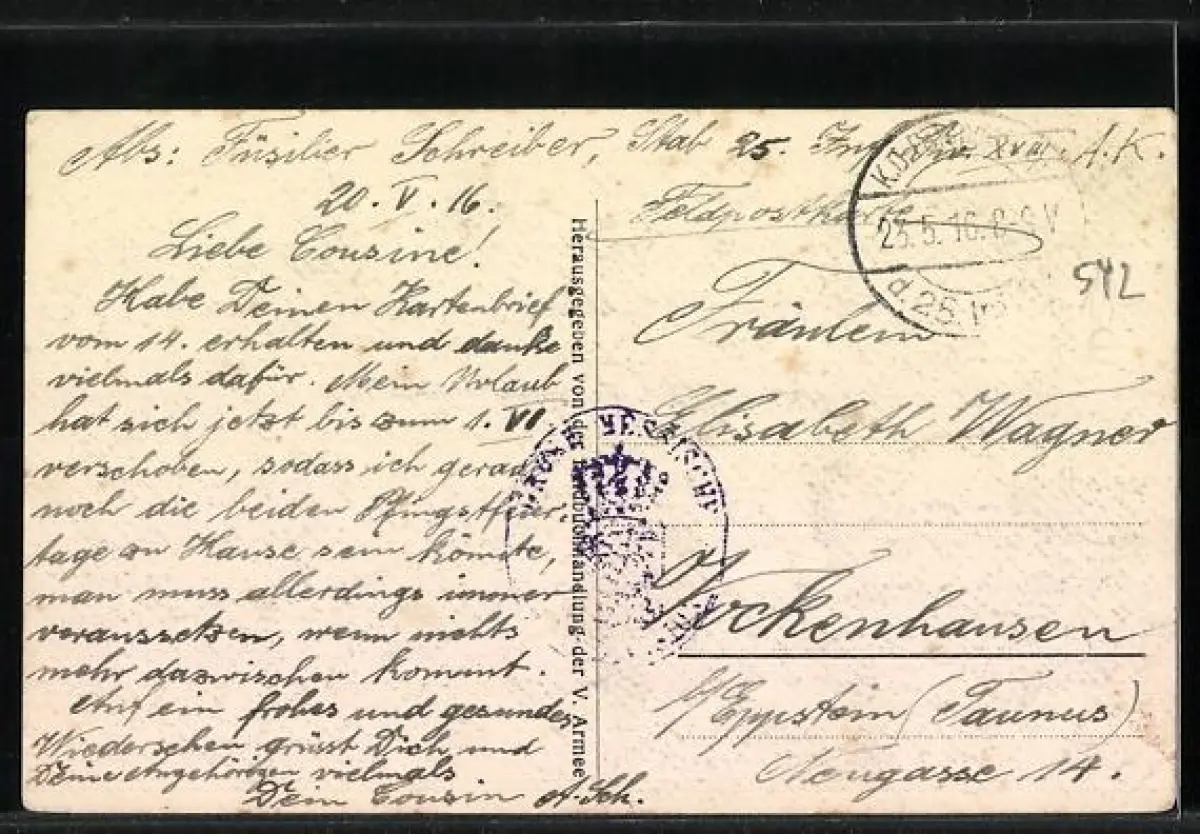 Abs: Füsilier Schreiber, Stab 25. Inf. Div. XVIII. A.K.
20. V. 16.
Liebe Cousine!
Habe Deinen Kartenbrief
vom 14. erhalten und danke
vielmals dafür. Mein Urlaub
hat sich jetzt bis zum 1. VI
verschoben, sodass ich gerade
noch die beiden Pfingstfeier-
tage zu Hause sein könnte,
man muss allerdings immer
voraussetzen, wenn nichts
mehr dazwischen kommt.
Auf ein frohes und gesundes
Wiedersehen grüsst Dich und
Deine Angehörigen vielmals
Dein Cousin A. Sch.
Herausgegeben von der Feldbuchhandlung der V. Armee
Feldpostkarte
23.5.16. 8-9V
d. 25. Inf.
542
Fräulein
Elisabeth Wagner
Vockenhausen
b/Eppstein (Taunus)
Neugasse 14.